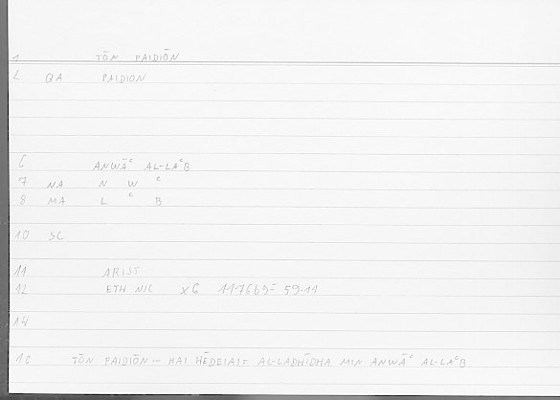 1 TŌN PAIDIŌN
2 QA PAIDION
6 ANWĀᶜ AL-LAᶜB
7 NA N W ᶜ
8 MA L ᶜ B
10 SC
11 ARIST
12 ETH NIC X6 1176b9= 59.11
14
16 TŌN PAIDIŌN... HAI AL-LADHĪDHA MIN ANWĀᶜ AL-LAᶜB